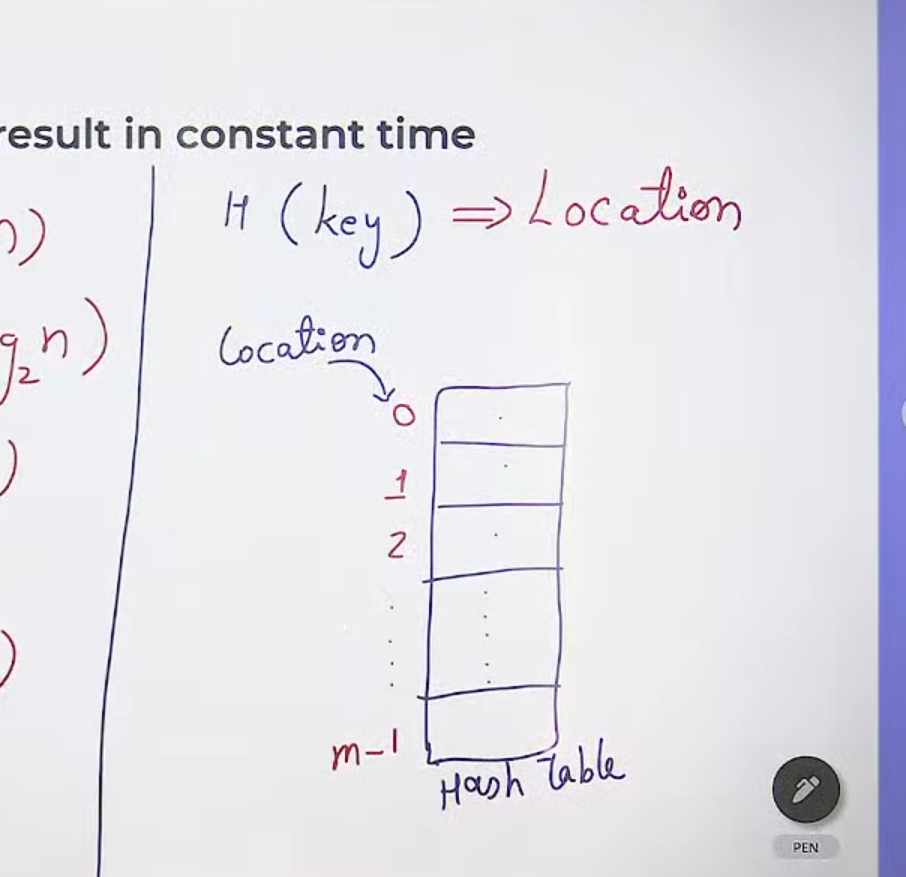 result in constant time
n))
H (key) ⇒ Location
g₂n)
Location
0
)
1
2
)
m-1
Hash Table
PEN